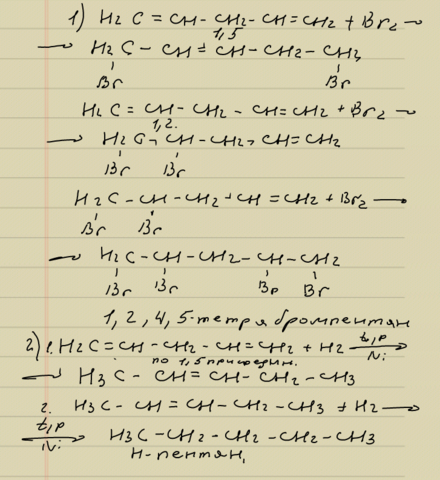 1) H₂C=CH-CH₂-CH=CH₂+Br₂→
1,5
→ H₂C-CH=CH-CH₂-CH₂
Br Br
H₂C=CH-CH₂-CH=CH₂+Br₂→
1,2.
→ H₂C-CH-CH₂-CH=CH₂
Br Br
H₂C-CH-CH₂-CH=CH₂+Br₂→
Br Br
→ H₂C-CH-CH₂-CH-CH₂
Br Br Br Br
1,2,4,5-тетрабромпентан
2) 1. H₂C=CH-CH₂-CH=CH₂+H₂ t,p→
по 1,5 присоедин. Ni
→ H₃C-CH=CH-CH₂-CH₃
2. H₃C-CH=CH-CH₂-CH₃+H₂→
t,p→ H₃C-CH₂-CH₂-CH₂-CH₃
Ni н-пентан,